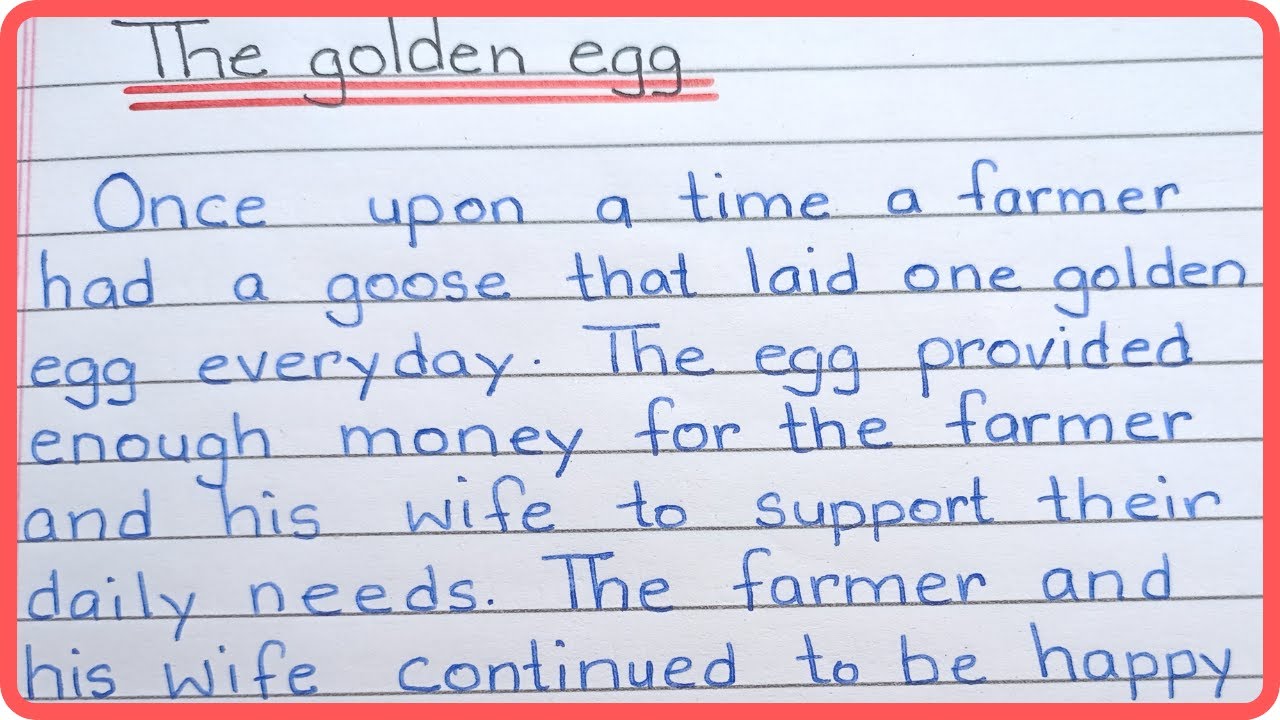 The golden egg
Once upon a time a farmer
had a goose that laid one golden
egg everyday. The egg provided
enough money for the farmer
and his wife to support their
daily needs. The farmer and
his wife continued to be happy